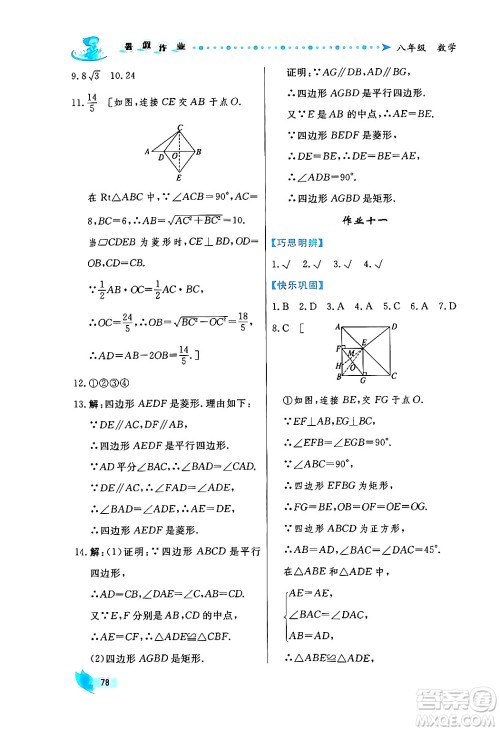 暑假作业
八年级 数学
9.8√3 10.24
11.14/5 [如图,连接 CE 交 AB 于点 O.
C
A D O B
E
在 Rt△ABC 中,∠ACB=90°,AC=
8,BC=6,∴AB=√(AC²+BC²)=10.
当▱CDEB 为菱形时,CE⊥BD,OD=
OB,CO=CE.
∵1/2AB·OC=1/2AC·BC,
∴OC=24/5,∴OB=√(BC²-OC²)=18/5,
∴AD=AB-2OB=14/5.]
12.①②③④
13.解:四边形 AEDF 是菱形.理由如下:
∵DE∥AC,DF∥AB,
∴四边形 AEDF 是平行四边形.
∵AD 平分∠BAC,∴∠BAD=∠CAD.
∵DE∥AC,∴∠EDA=∠CAD,
∴∠BAD=∠EDA,∴AE=DE,
∴四边形 AEDF 是菱形.
14.解:(1)证明:∵四边形 ABCD 是平行
四边形,
∴∠A=∠C,AD=CB,AB=CD.
∵E,F 分别是 AB,CD 的中点,
∴AE=CF,∴△ADE≌△CBF.
(2)四边形 AGBD 是矩形.
78
证明:∵AD∥BC,AG∥BD,
∴四边形 AGBD 是平行四边形.
又∵E 是 AB 的中点,∴AE=BE.
∵四边形 BEDF 是菱形,
∴DE=BE,∴AE=DE=BE,
∴∠ADB=90°,
∴四边形 AGBD 是矩形.
作业十一
[巧思明辨]
1.√ 2.√ 3.√ 4.√
[快乐巩固]
1.B 2.B 3.A 4.A 5.A 6.A 7.D
8.C [
A D
F M E
H O
B G C
①如图,连接 BE,交 FG 于点 O.
∵EF⊥AB,EG⊥BC,
∴∠EFB=∠EGB=90°.
∵∠ABC=90°,
∴四边形 EFBG 为矩形,
∴FG=BE,OB=OF=OE=OG.
∵四边形 ABCD 为正方形,
∴AB=AD,∠BAC=∠DAC=45°.
在△ABE 和△ADE 中,
AE=AE,
∠BAC=∠DAC,
AB=AD,
∴△ABE≌△ADE,